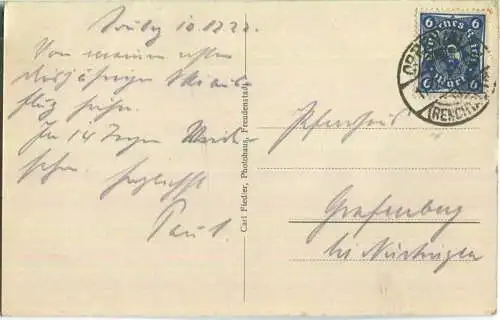 10.12.22.
Von meinem ersten
diesjährigen Skiaus-
flug
In 14 Tagen Wieder-
sehen. herzlichst
Paul.
Carl Fiedler, Photohaus, Freudenstadt
Pfarrhaus
Grafenberg
bei Nürtingen
6 6
Deutsches Reich
6 6
OPPENAU
(RENCHTAL)